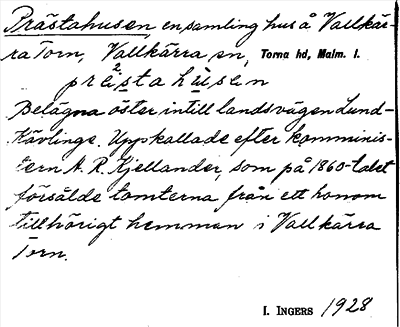 Prästahusen, en samling hus å Vallkär-
ra Torn, Vallkärra sn, Torna hd, Malm. l.
Belägna öster intill landsvägen Lund-
Kävlinge. Uppkallade efter komminis-
tern A. R. Kjellander, som på 1860-talet
försålde tomterna från ett honom
tillhörigt hemman i Vallkärra
Torn.
I. INGERS 1928